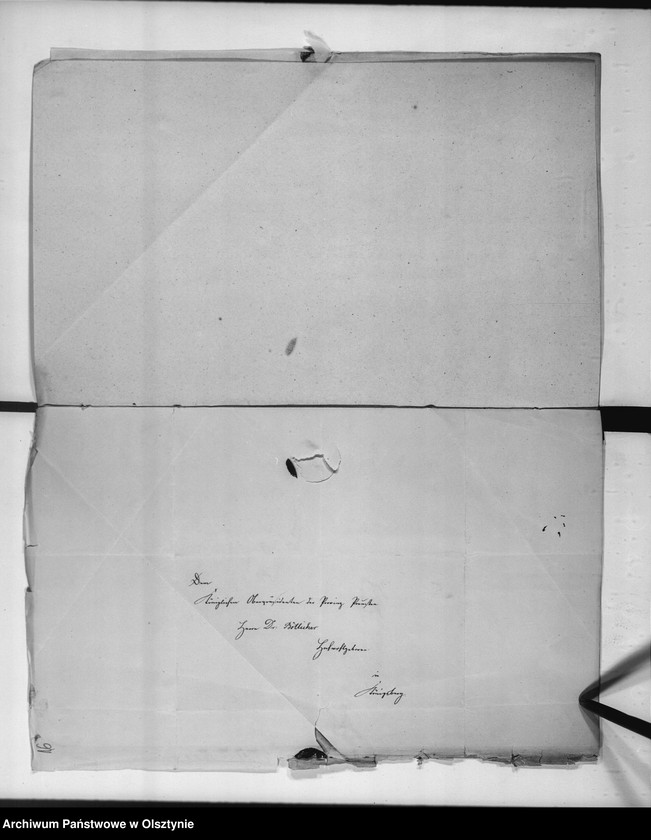 Dem
Königlichen Oberpräsidenten der Provinz Preußen
Herrn Dr. Bötticher
Hochwohlgeboren
in
Königsberg
16
Archiwum Państwowe w Olsztynie